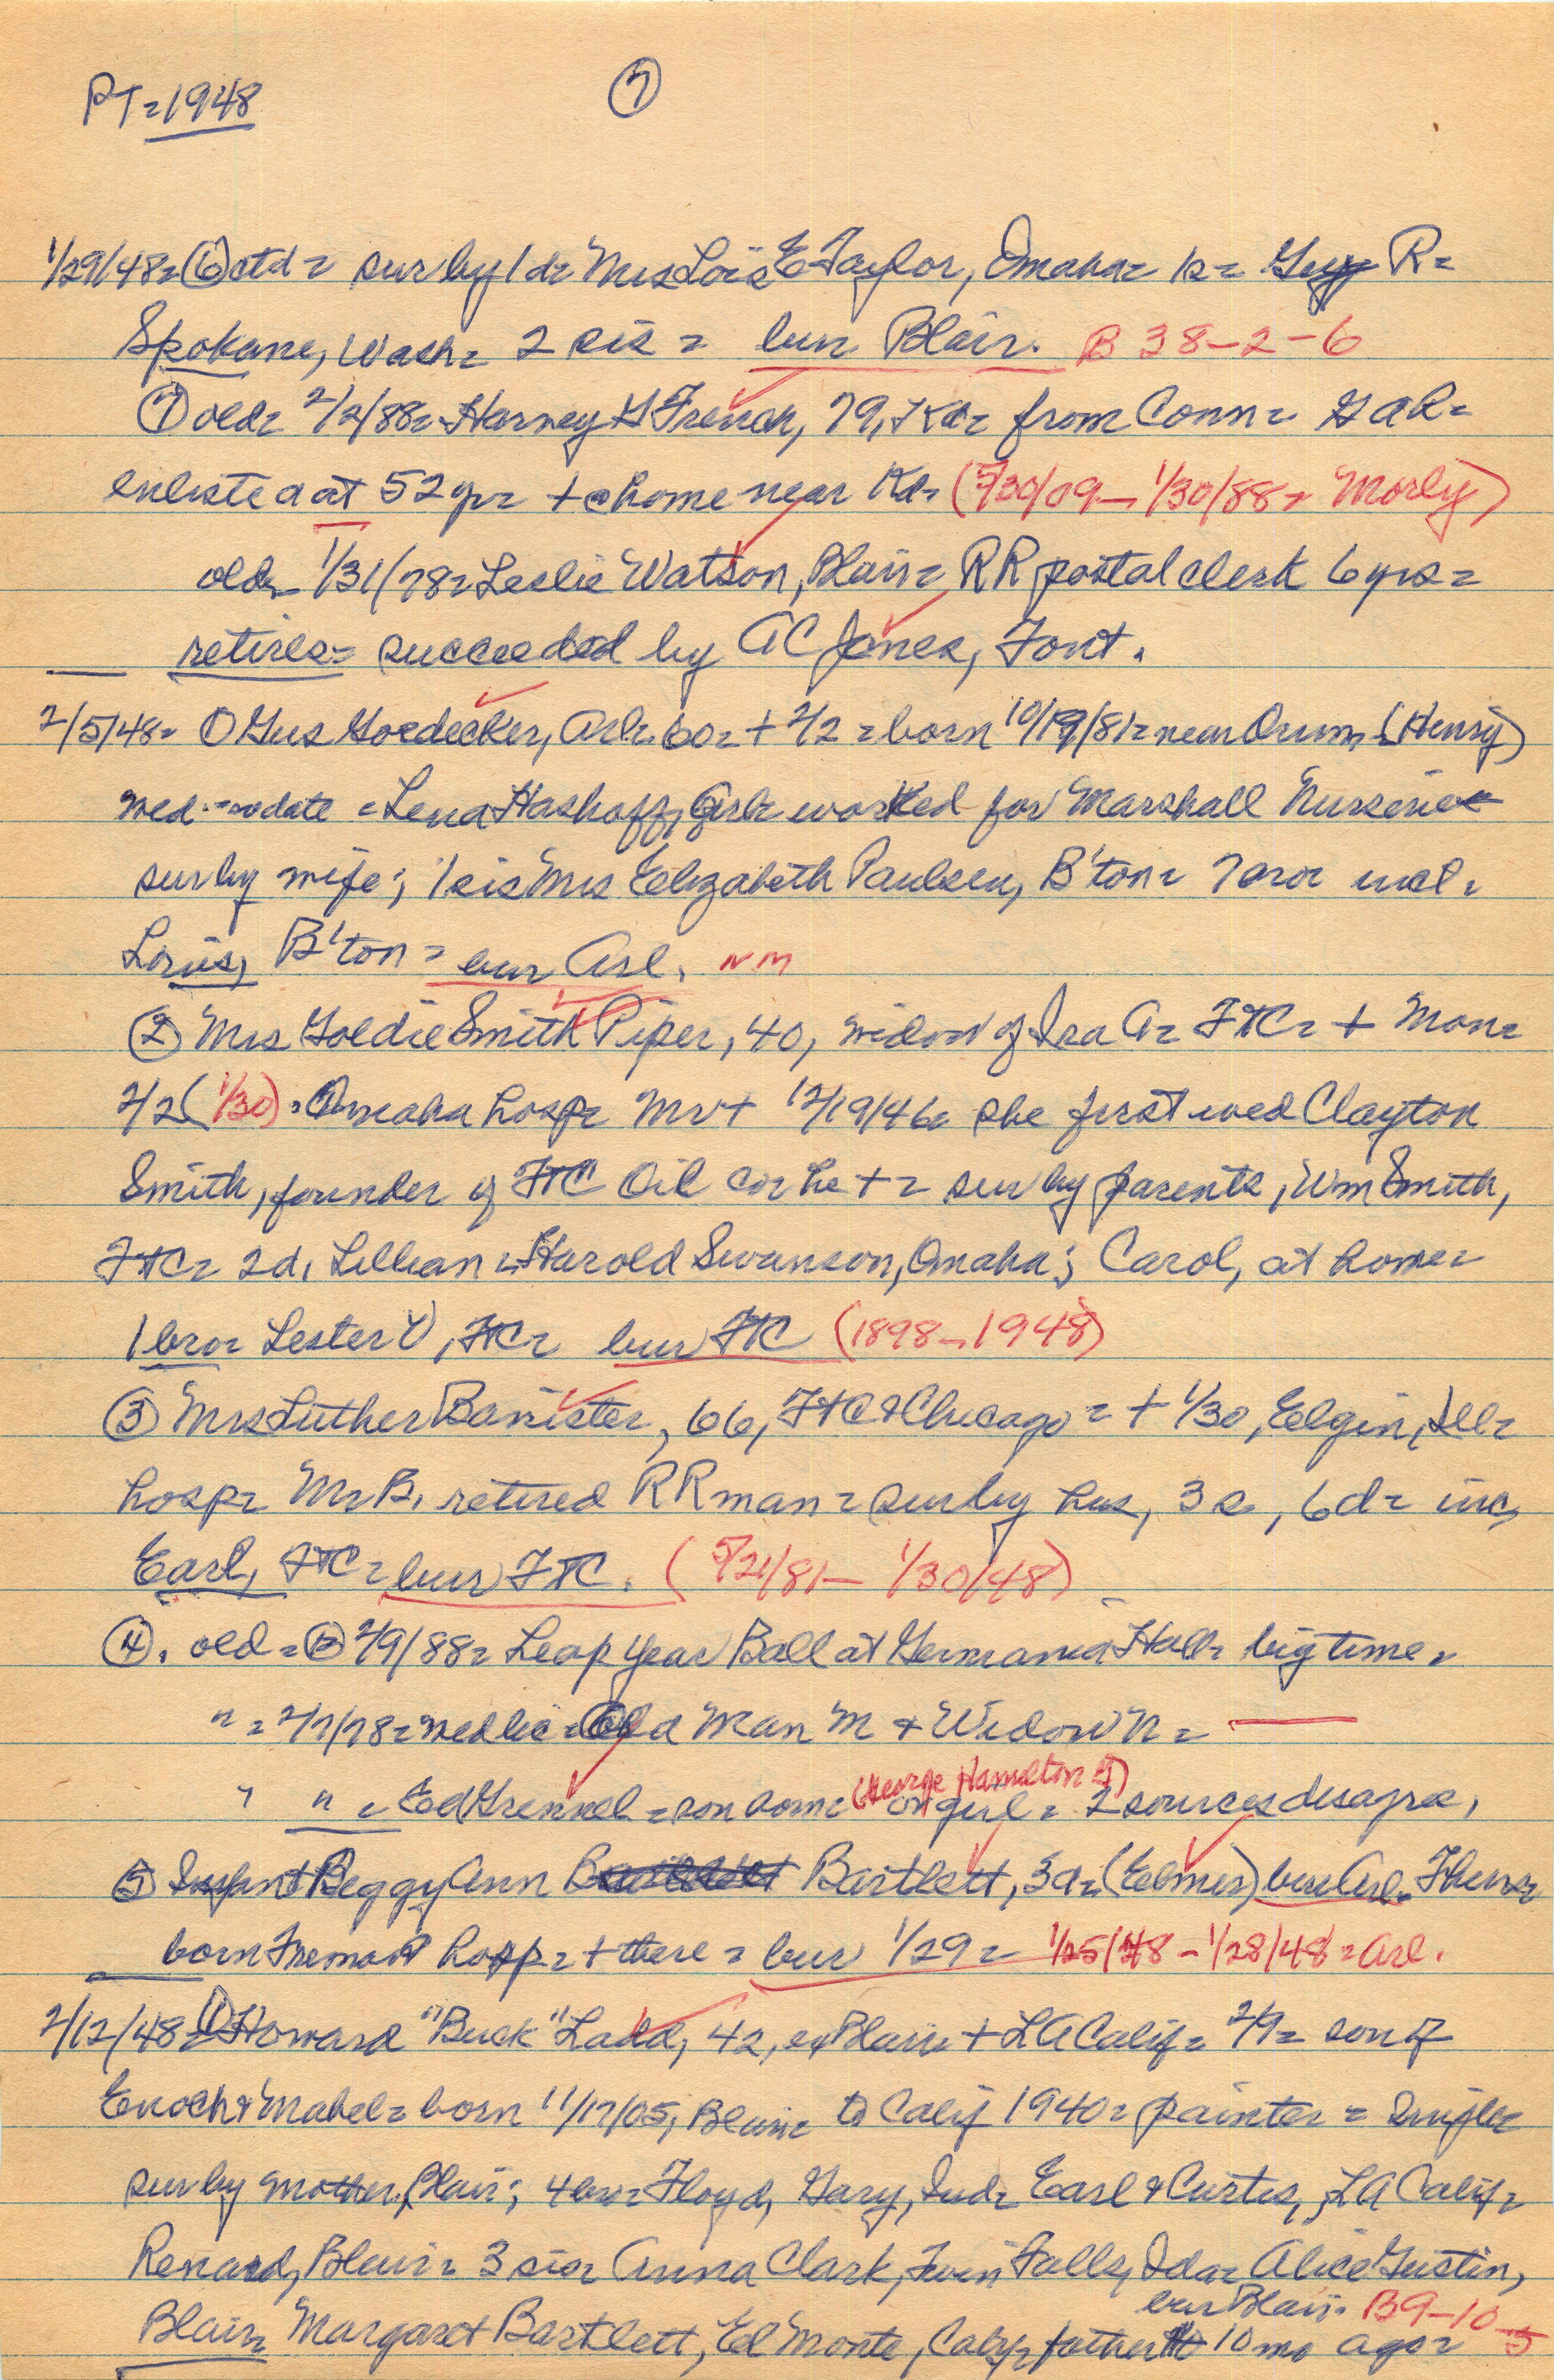 PT=1948 ⑦
1/29/48= ⑥ ctd= sur by 1 d= Mrs Lois E Taylor, Omaha= 1s= Guy R=
Spokane, Wash= 2 sis = bur Blair. B 38-2-6
⑦ old= 2/2/88= Harvey H French, 79, Kd= from Conn= GAR=
enlisted at 52 yr= + @ home near Kd= (5/30/09 - 1/30/88= Morly)
old= 1/31/78= Leslie Watson, Blair= RR postal clerk 6 yrs=
retires= succeeded by AC Jones, Font.
2/5/48= ① Gus Goedecker, Arl= 60= + 2/2 = born 10/19/81= near Orum= (Henry)
wed= no date = Lena Hashoff, Arl= worked for Marshall Nurseries
sur by wife; 1 sis Mrs Elizabeth Paulsen, B'ton= 7 bro= incl=
Louis, B'ton= bur Arl. NM
② Mrs Goldie Smith Piper, 40, widow of Ira A= FTC= + Mon=
2/2 (1/30) = Omaha hosp= Mr + 12/19/46= she first wed Clayton
Smith, founder of FTC Oil co= he + = sur by parents, Wm Smith,
FTC= 2d, Lillian = Harold Swanson, Omaha; Carol, at home=
1 bro= Lester V, FTC= bur FTC (1898-1948)
③ Mrs Luther Banister, 66, FTC & Chicago = + 1/30, Elgin, Ill=
hosp= Mr B, retired RR man = sur by hus, 3 s, 6 d= inc,
Earl, FTC= bur FTC. (5/21/81- 1/30/48)
④. old = 2/9/88= Leap Year Ball at Germania Hall= big time=
" = 2/7/78= wed lic = Old Man M + Widow N =
" " = Ed Grennel = son born= (George Hamilton G) or girl = 2 sources disagree,
⑤ Infant Peggy Ann Bartlett, 3 d= (Elmer) bur Arl= Thurs=
born Fremont hosp= + there = bur 1/29= 1/25/48 - 1/28/48= Arl.
2/12/48= ① Howard "Buck" Ladd, 42, ex Blair= + LA Calif= 2/9= son of
Enoch & Mabel= born 11/17/05, Blair= to Calif 1940= painter = single=
sur by mother, Blair; 4 bro= Floyd, Gary, Ind= Earl & Curtis, LA Calif=
Renard, Blair= 3 sis= Anna Clark, Twin Falls, Ida= Alice Gustin,
bur Blair= B9-10-5
Blair= Margaret Bartlett, El Monte, Calif= father + 10 mo ago=